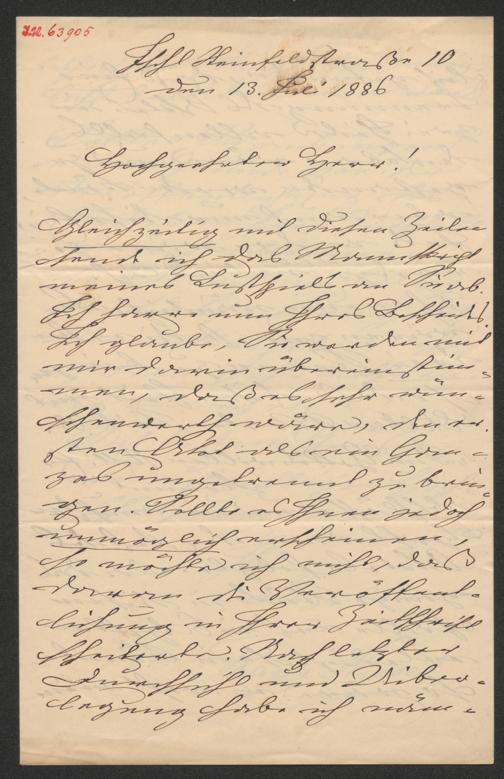 I.N. 63905
Ischl Steinfeldstraße 10
den 13. Juli 1886
Hochgeehrter Herr!
Gleichzeitig mit diesen Zeilen
sende ich das Manuskript
meines Lustspiels an Sie ab.
Ich harre nun Ihres Bescheides.
Ich glaube, Sie werden mit
mir darin übereinstim-
men, daß es sehr wün-
schenswerth wäre, den er-
sten Akt als ein Gan-
zes ungetrennt zu brin-
gen. Sollte es Ihnen jedoch
unmöglich erscheinen,
so möchte ich nicht, daß
daran die Veröffent-
lichung in Ihrer Zeitschrift
scheiterte. Nach letzter
Durchsicht und Ueber-
legung habe ich näm-